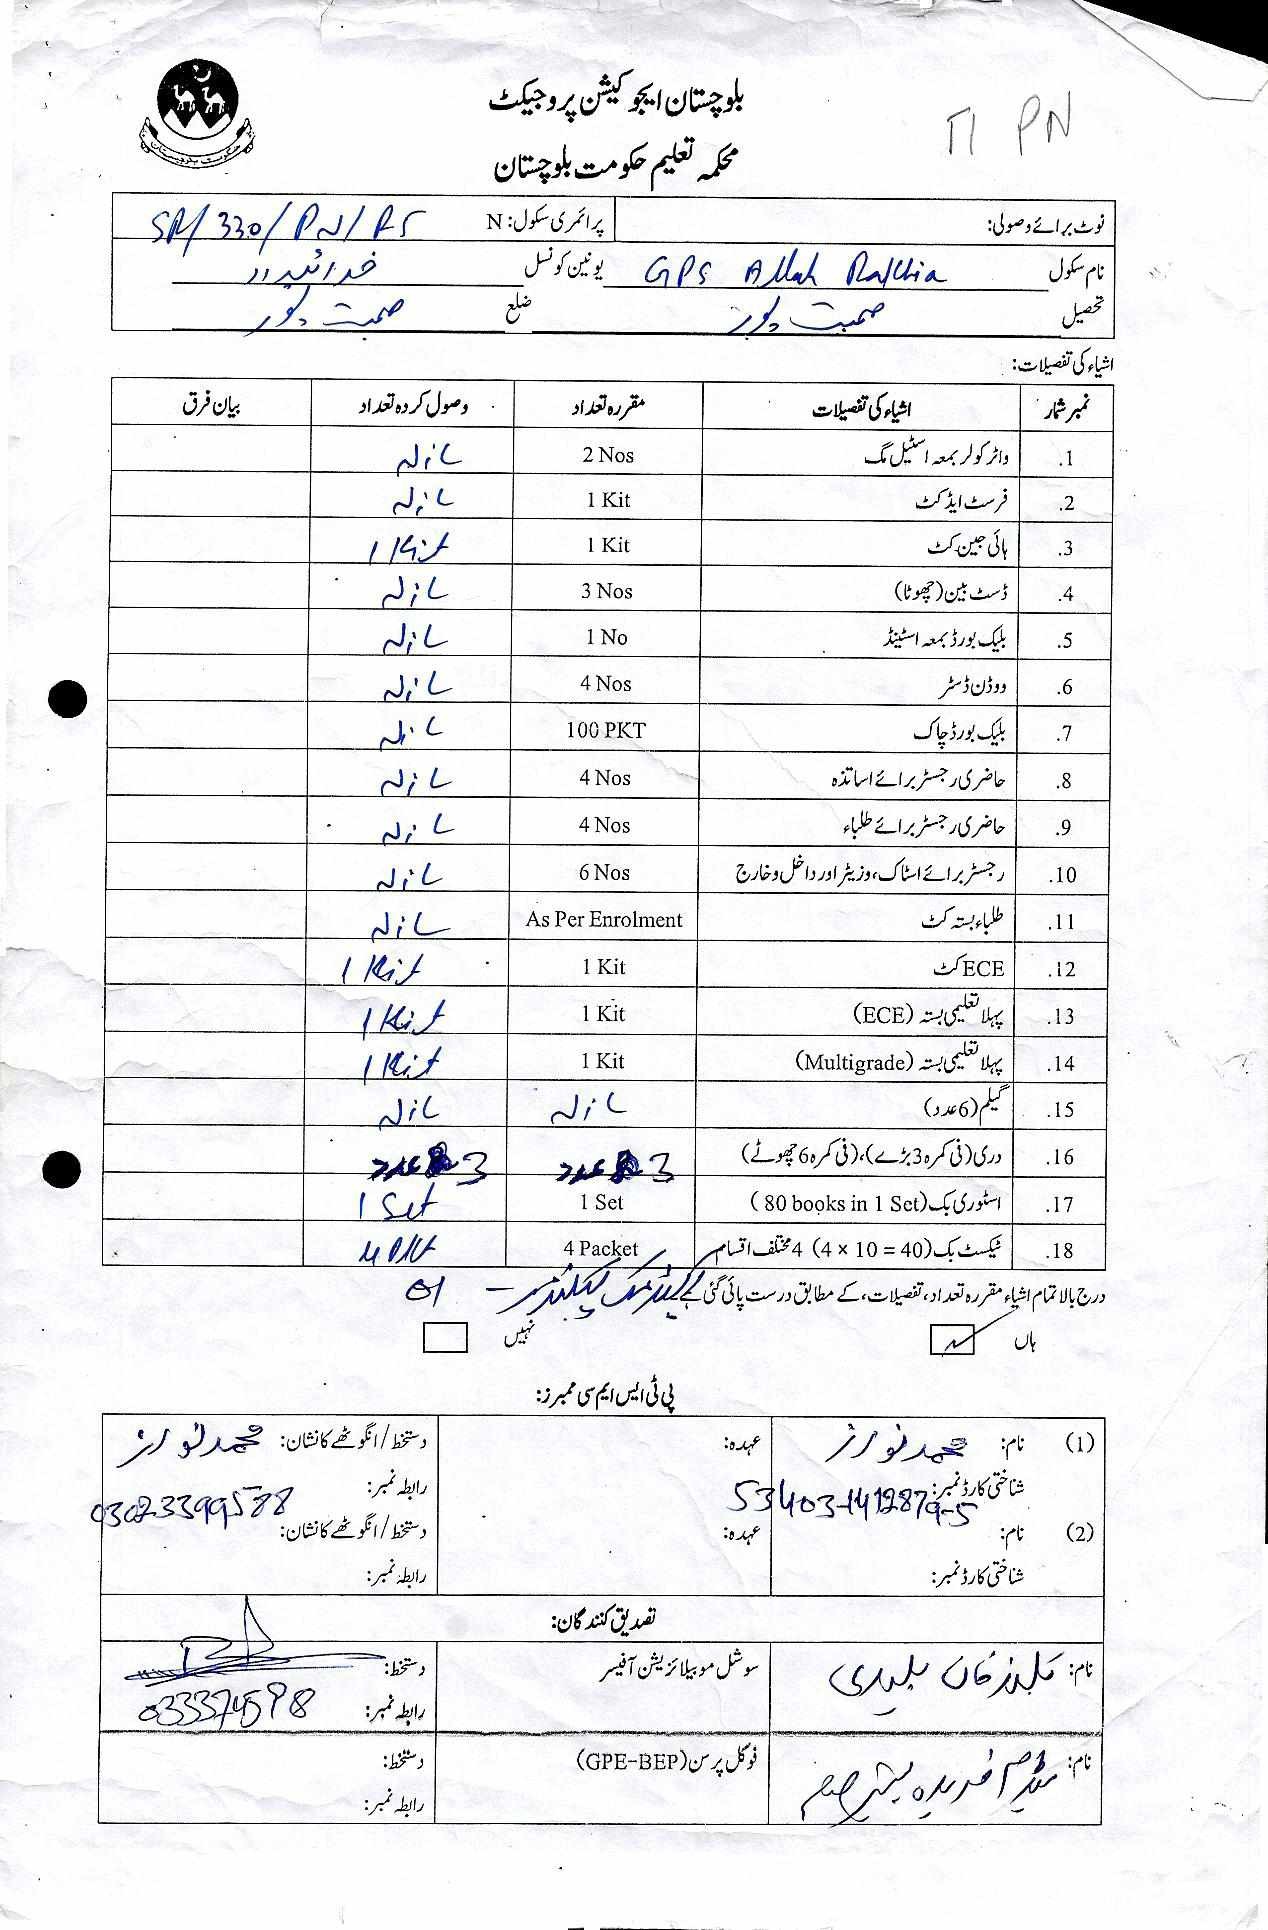 بلوچستان ایجوکیشن پروجیکٹ
TI PN
محکمہ تعلیم حکومت بلوچستان
حکومت بلوچستان
نوٹ برائے وصولی: پرائمری سکول: N SR/330/PN/RS
نام سکول GPS Allah Rakhia یونین کونسل خدائیداد
تحصیل صحبت پور ضلع صحبت پور
اشیاء کی تفصیلات:
نمبر شمار اشیاء کی تفصیلات مقررہ تعداد وصول کردہ تعداد بیان فرق
1. واٹر کولر بمعہ اسٹیل مگ 2 Nos Nil
2. فرسٹ ایڈ کٹ 1 Kit Nil
3. ہائی جین کٹ 1 Kit 1 Kit
4. ڈسٹ بین (چھوٹا) 3 Nos Nil
5. بلیک بورڈ بمعہ اسٹینڈ 1 No Nil
6. ووڈن ڈسٹر 4 Nos Nil
7. بلیک بورڈ چاک 100 PKT Nil
8. حاضری رجسٹر برائے اساتذہ 4 Nos Nil
9. حاضری رجسٹر برائے طلباء 4 Nos Nil
10. رجسٹر برائے اسٹاک، وزیٹر اور داخل و خارج 6 Nos Nil
11. طلباء بستہ کٹ As Per Enrolment Nil
12. ECE کٹ 1 Kit 1 Kit
13. پہلا تعلیمی بستہ (ECE) 1 Kit 1 Kit
14. پہلا تعلیمی بستہ (Multigrade) 1 Kit 1 Kit
15. گیلم (6 عدد) Nil Nil
16. دری (فی کمرہ 3 بڑے)، (فی کمرہ 6 چھوٹے) 3 عدد 3 عدد
17. اسٹوری بک (80 books in 1 Set) 1 Set 1 Set
18. ٹیکسٹ بک (4 × 10 = 40) 4 مختلف اقسام 4 Packet 4 PKT
درج بالا تمام اشیاء مقررہ تعداد، تفصیلات، کے مطابق درست پائی گئی ہے 01
ہاں نہیں
پی ٹی ایس ایم سی ممبرز:
(1) نام: محمد نواز عہدہ: دستخط/انگوٹھے کا نشان: محمد نواز
شناختی کارڈ نمبر: 53403-1412879-5 رابطہ نمبر: 03023399588
(2) نام: عہدہ: دستخط/انگوٹھے کا نشان:
شناختی کارڈ نمبر: رابطہ نمبر:
تصدیق کنندگان:
نام: سوشل موبیلائزیشن آفیسر دستخط:
رابطہ نمبر:
نام: میڈم فریدہ فوکل پرسن (GPE-BEP) دستخط:
رابطہ نمبر: